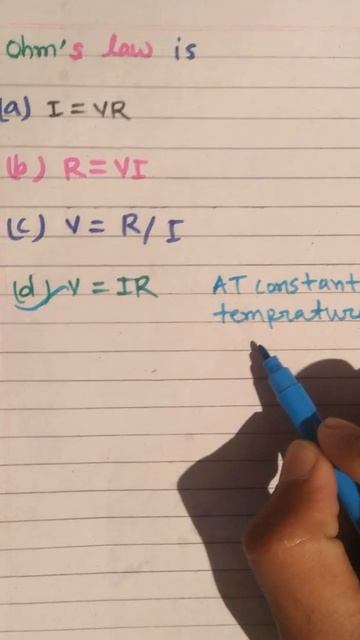 Ohm's law is
(a) I = VR
(b) R = VI
(c) V = R/I
(d) V = IR AT constant
tempratur